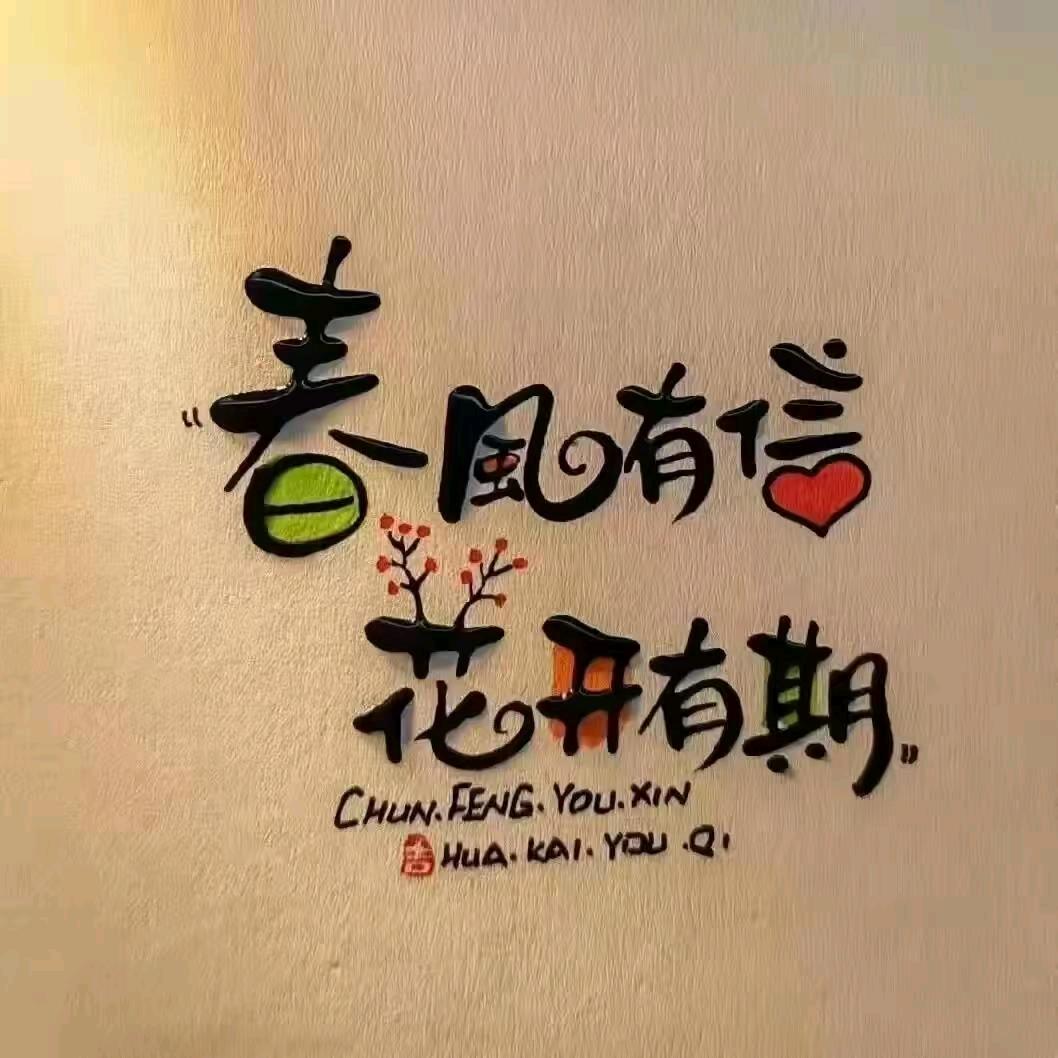 "春風有信
花开有期"
CHUN.FENG.YOU.XIN
HUA.KAI.YOU.QI